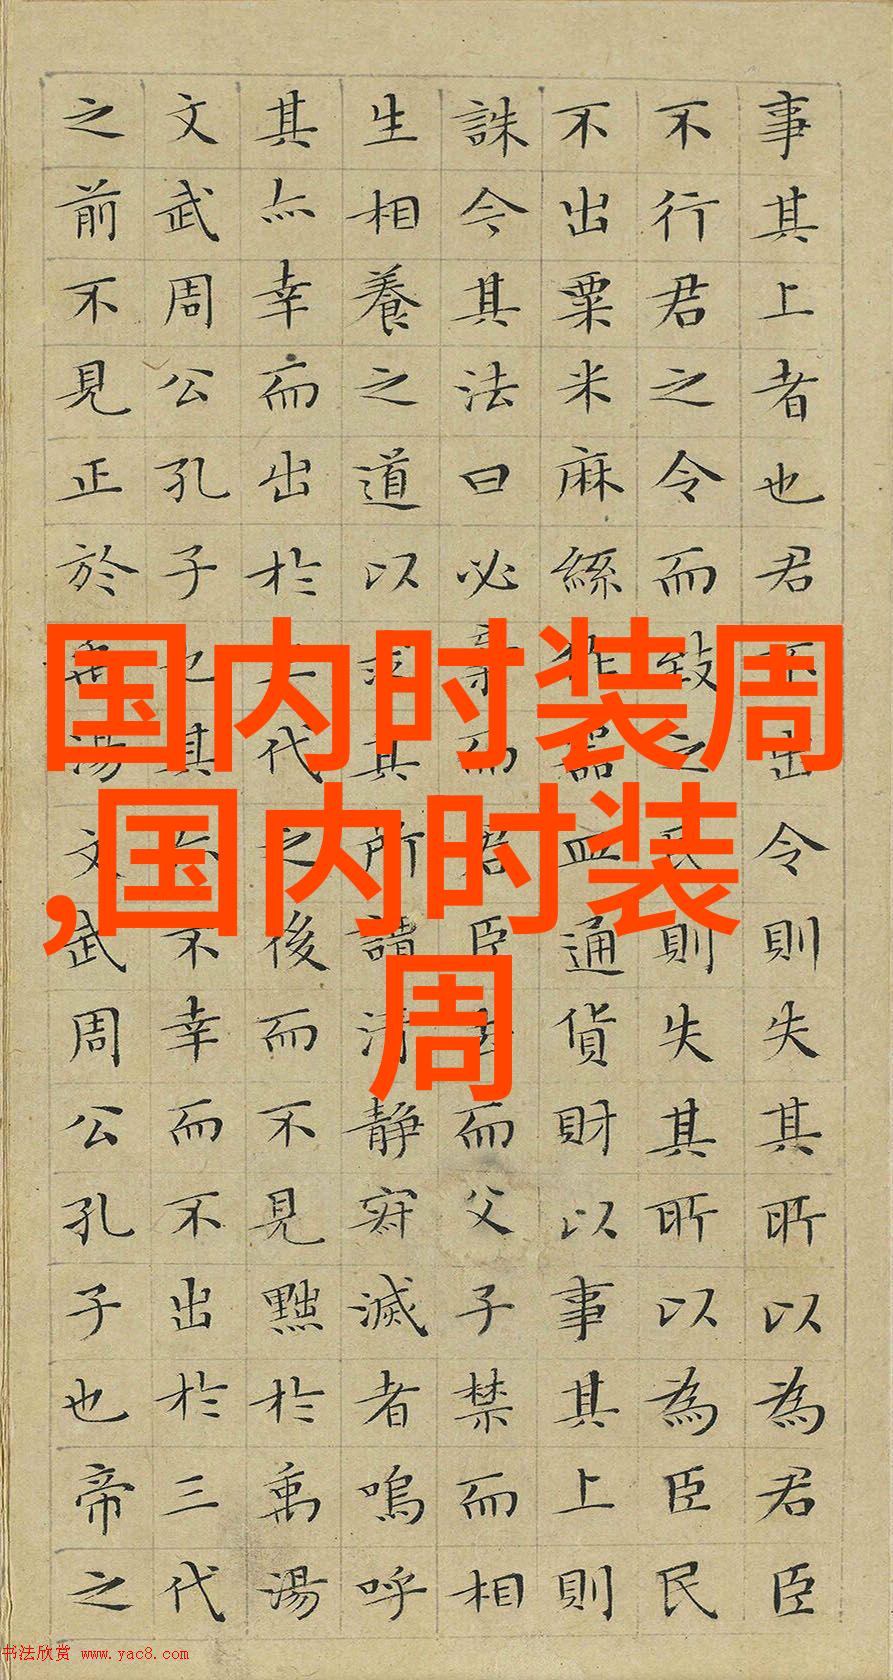 国内时装周
,国内时装
周
事其上者也君不出令則失其所以為君臣
不行君之令而致之則失其所以為臣民
不出粟米麻絲作器皿通貨財以事其上則
誅今其法曰必棄而君臣去而父子禁而相
生相養之道以求其所謂清静寂滅者嗚呼
其亦幸而出於三代之後而不見黜於禹湯
文武周公孔子也其亦不幸而不出於三代
之前不見正於禹湯文武周公孔子也帝之
书法欣赏 www.yac8.com